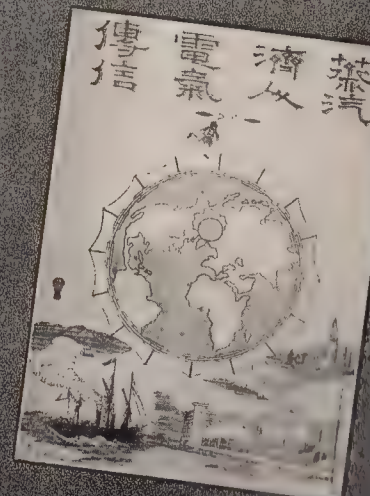 蒸汽
濟人
電氣
傳信